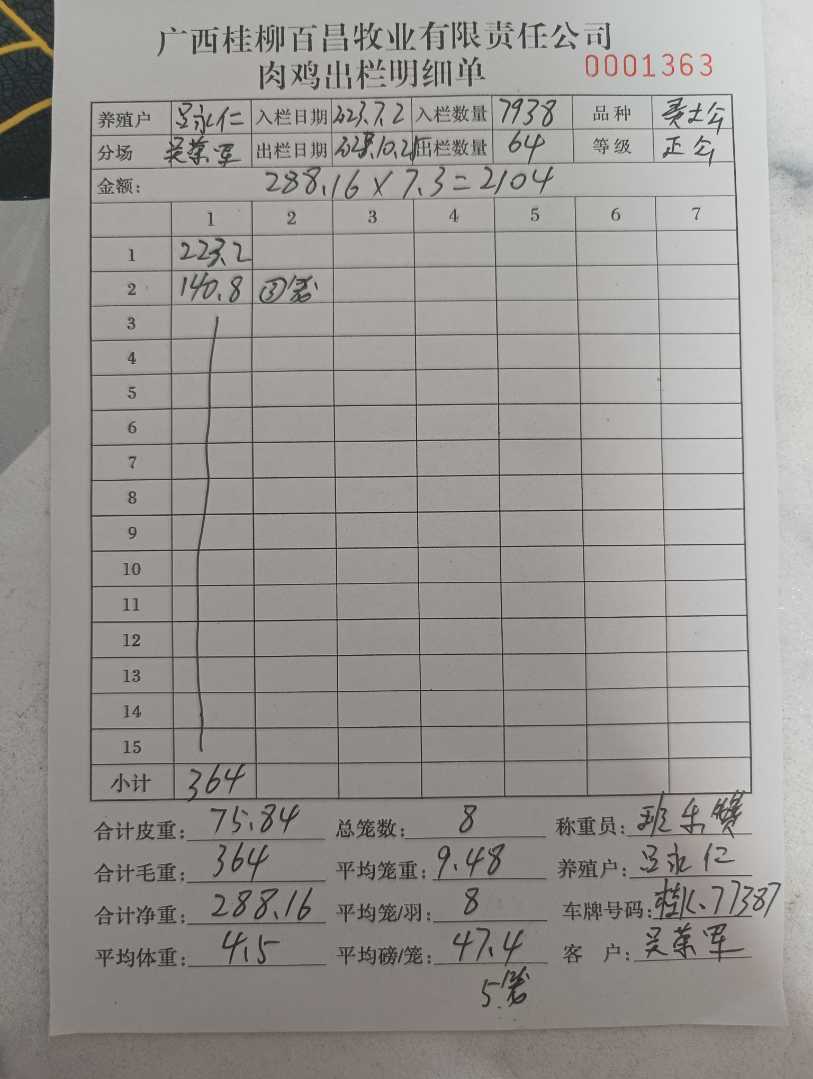 广西桂柳百昌牧业有限责任公司
肉鸡出栏明细单 0001363
养殖户 吕永仁 入栏日期 223.7.2 入栏数量 7938 品种
分场 吴荣军 出栏日期 出栏数量 64 等级 正公
金额: 288.16×7.3=2104
1 2 3 4 5 6 7
1 223.2
2 140.8
3
4
5
6
7
8
9
10
11
12
13
14
15
小计 364
合计皮重: 75.84 总笼数: 8 称重员: 班乐赞
合计毛重: 364 平均笼重: 9.48 养殖户: 吕永仁
合计净重: 288.16 平均笼/羽: 8 车牌号码: 桂K.77387
平均体重: 4.5 平均磅/笼: 47.4 客户: 吴荣军